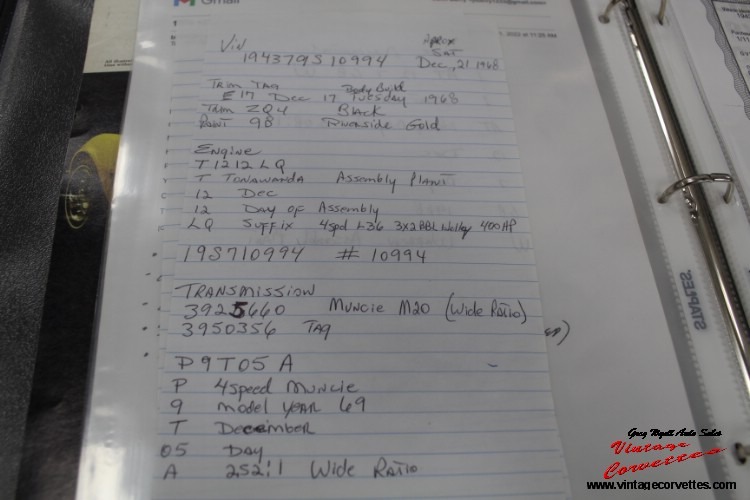 Gmail
Vin
Approx
Sat
194379S10994 Dec, 21 1968
Trim Tag Body Build
E17 Dec 17 Tuesday 1968
Trim ZQ4 Black
Paint 98 Riverside Gold
Engine
T1212LQ
T Tonawanda Assembly Plant
12 Dec
12 Day of Assembly
LQ Suffix 4spd L36 3x2BBL Holley 400HP
19S710994 # 10994
Transmission
3925660 Muncie M20 (Wide Ratio)
3950356 Tag
P9T05A
P 4speed Muncie
9 model year 69
T December
05 Day
A 252:1 Wide Ratio
STAPLES
Greg Wyatt Auto Sales
Vintage
Corvettes
www.vintagecorvettes.com